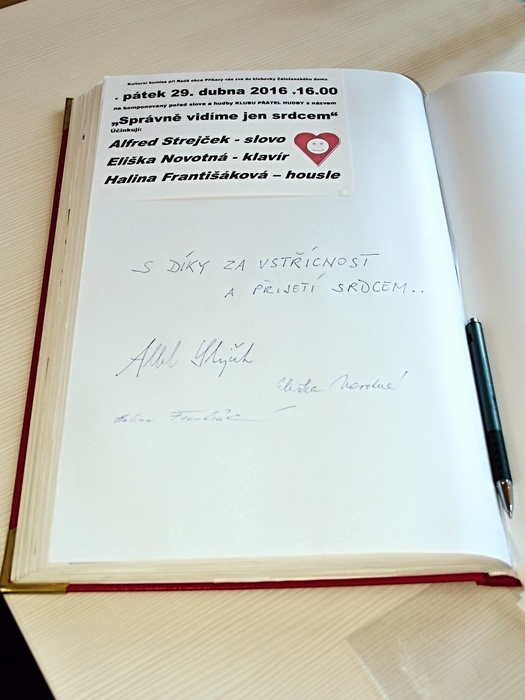 Kulturní komise při Radě obce Přibavy vás zve do klubovky Záloženského domu
v pátek 29. dubna 2016 v 16.00
na komponovaný pořad slova a hudby KLUBU PŘÁTEL HUDBY s názvem
„Správně vidíme jen srdcem“
Účinkují:
Alfred Strejček - slovo
Eliška Novotná - klavír
Halina Františáková – housle
S DÍKY ZA VSTŘÍCNOST
A PŘIJETÍ SRDCEM..
Eliška Novotná
Halina